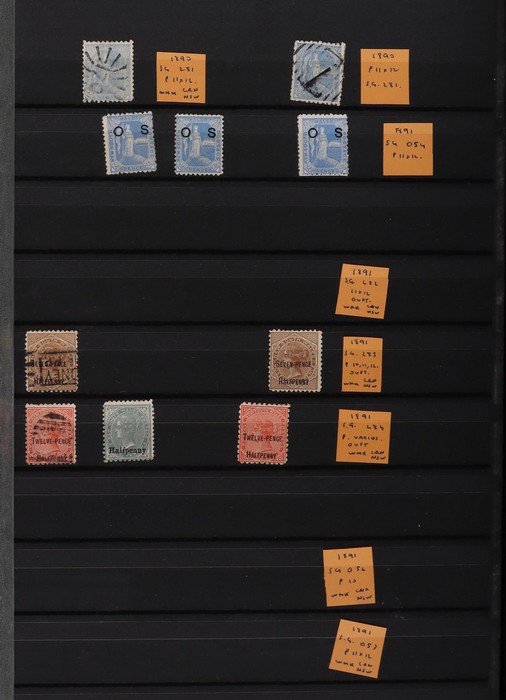 1892
SG 281
P 11x12.
WMK CRN
NSW
1892
P 11x12
SG. 281.
O S
O S
O S
1891
SG 054
P 11x12.
1891
S.G 282
11x12
OVPT.
WMK CRN
NSW
SEVEN-PENCE
HALFPENNY
SEVEN-PENCE
HALFPENNY
1891
SG. 283
P 10,11,12.
OVPT.
WMK CRN
NSW
TWELVE-PENCE
HALFPENNY
Halfpenny
TWELVE-PENCE
HALFPENNY
1891
S.G. 284
P. VARIOUS.
OVPT
WMK CRN
NSW
1891
S.G 056
P 10
WMK CRN
NSW
1891
S.G. 057
P 11x12
WMK CRN
NSW